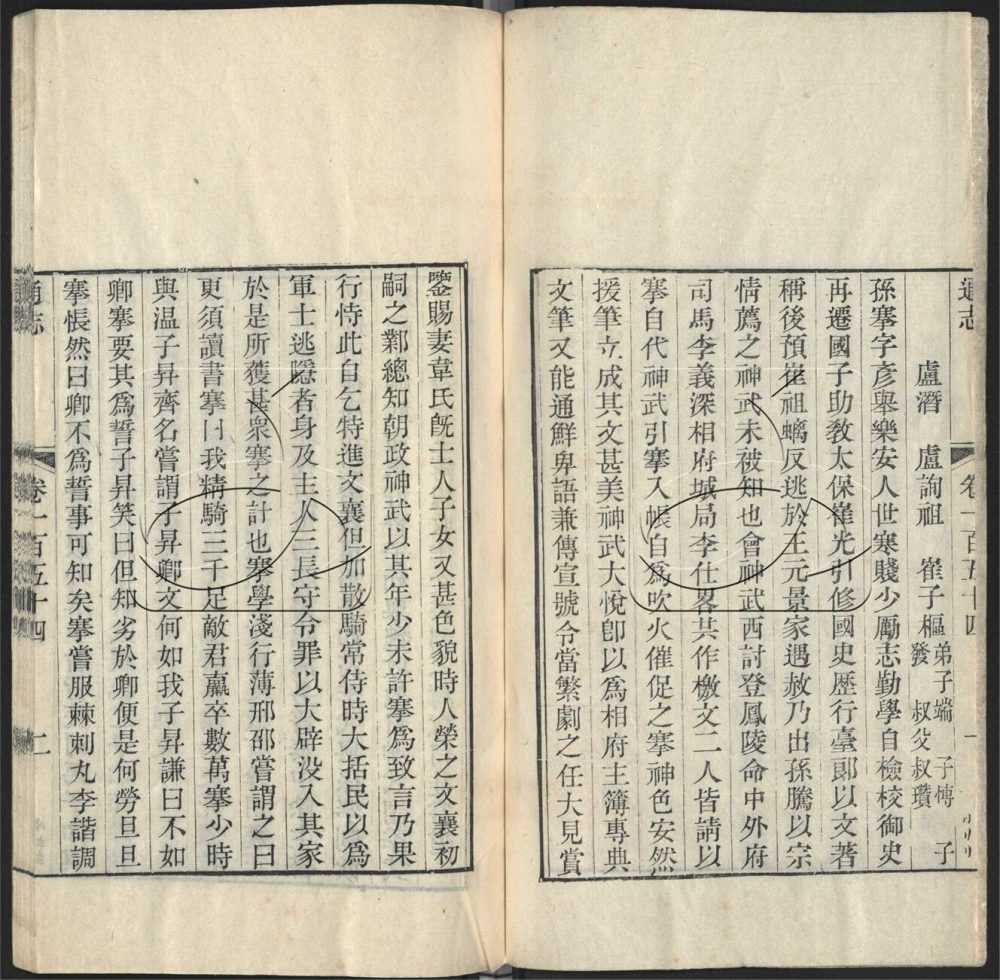 通志
卷一百五十四
盧潛　盧詢祖　崔子樞　弟子端　子愽　子發　叔父叔瓚
孫搴字彥舉樂安人世寒賤少厲志勤學自檢校御史
再遷國子助敎太保崔光引修國史歷行臺郞以文著
稱後預崔祖螭反逃於王元景家遇赦乃出孫騰以宗
情薦之神武未被知也會神武西討登鳳陵命中外府
司馬李義深相府城局李仕畧共作檄文二人皆請以
搴自代神武引搴入帳自爲吹火催促之搴神色安然
援筆立成其文甚美神武大悅卽以爲相府主簿專典
文筆又能通鮮卑語兼傳宣號令當繁劇之任大見賞
鑒賜妻韋氏旣士人子女又甚色貌時人榮之文襄初
嗣之鄴總知朝政神武以其年少未許搴爲致言乃果
行恃此自乞特進文襄但加散騎常侍時大括民以爲
軍士逃隱者身及主人三長守令罪以大辟没入其家
於是所獲甚衆搴之計也搴學淺行薄邢邵嘗謂之曰
更須讀書搴曰我精騎三千足敵君羸卒數萬搴少時
與温子昇齊名嘗謂子昇卿文何如我子昇謙曰不如
卿搴要其爲誓子昇笑曰但知劣於卿便是何勞旦旦
搴悵然曰卿不爲誓事可知矣搴嘗服棘刺丸李諧調
通志
卷一百五十四
二